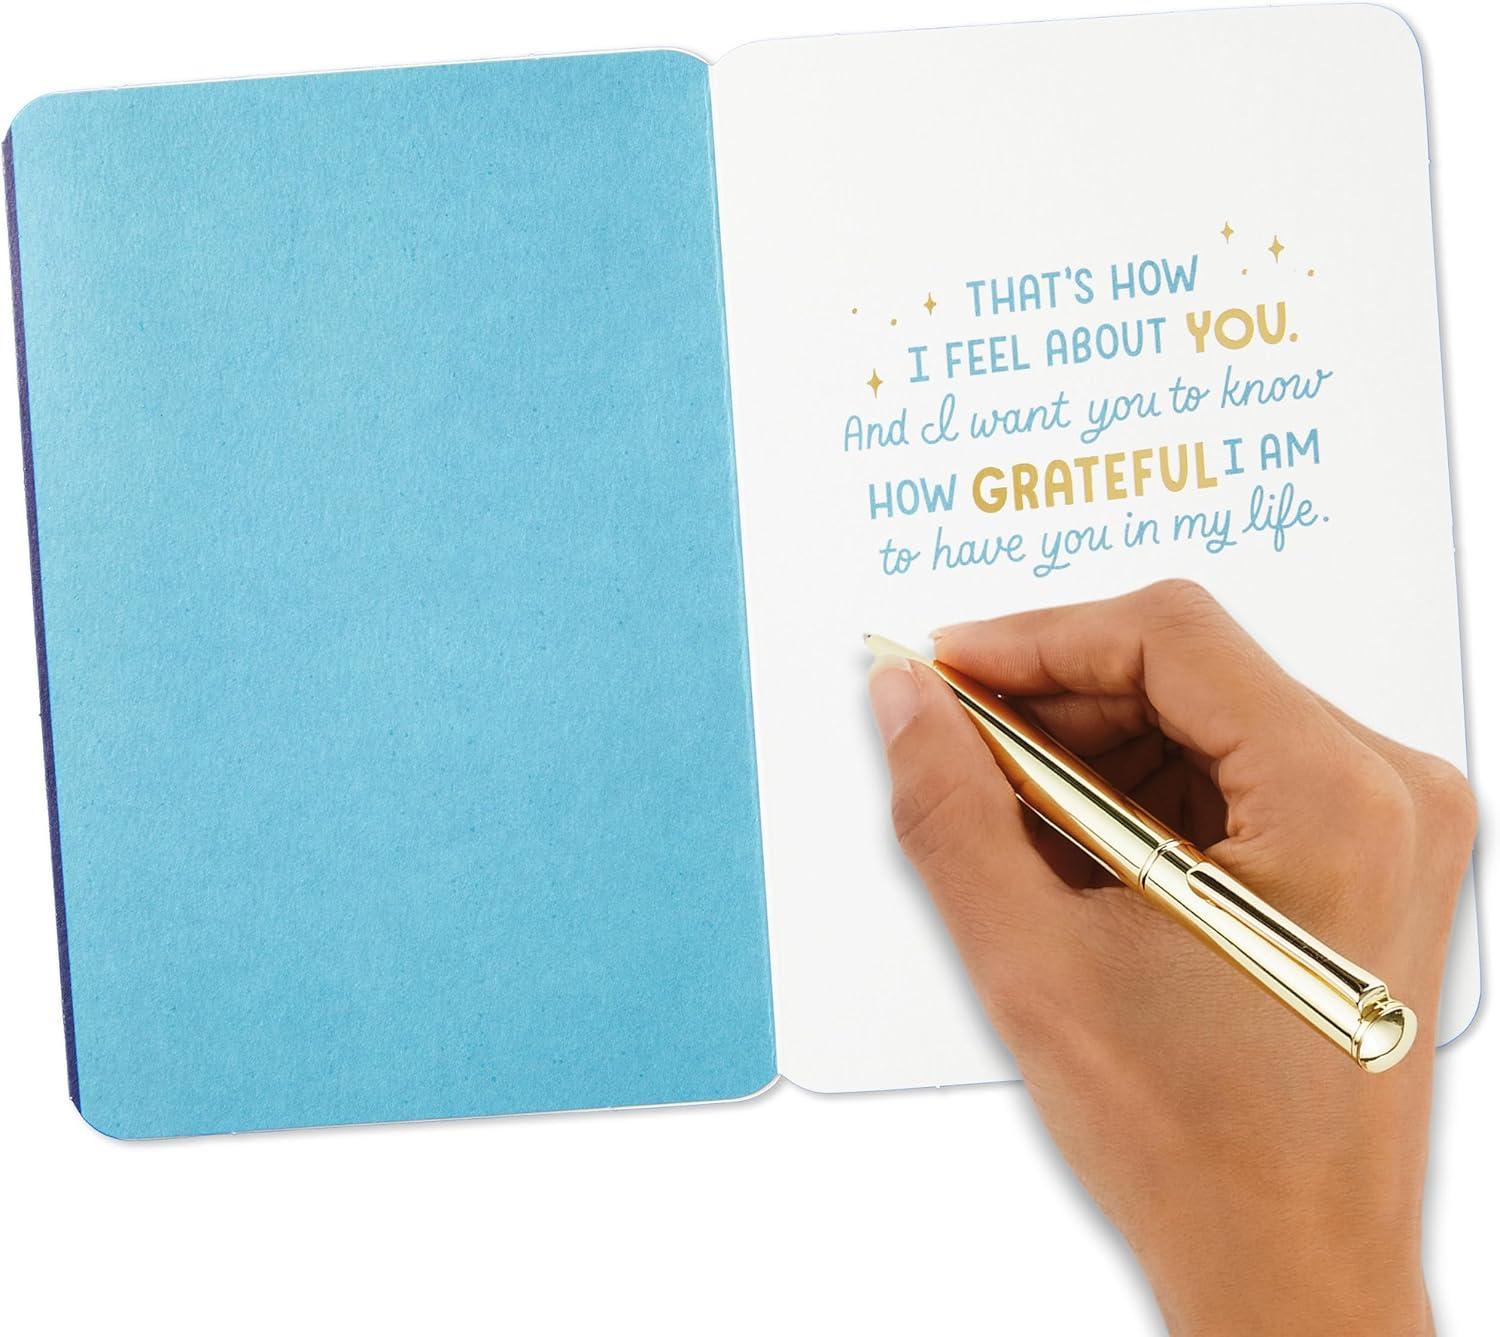 THAT'S HOW
I FEEL ABOUT YOU.
And I want you to know
HOW GRATEFUL I AM
to have you in my life.